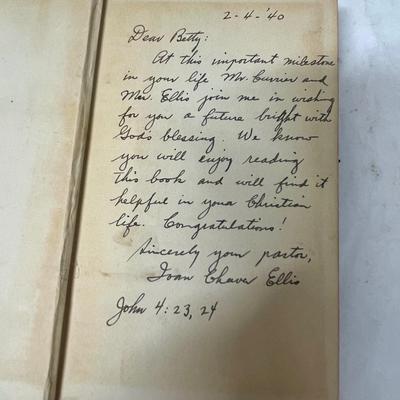 2-4-'40
Dear Betty:
At this important milestone
in your life Mr. Currier and
Mrs. Ellis join me in wishing
for you a future bright with
God's blessing. We know
you will enjoy reading
this book and will find it
helpful in your Christian
life. Congratulations!
Sincerely your pastor,
Ivan Chaver Ellis
John 4:23, 24